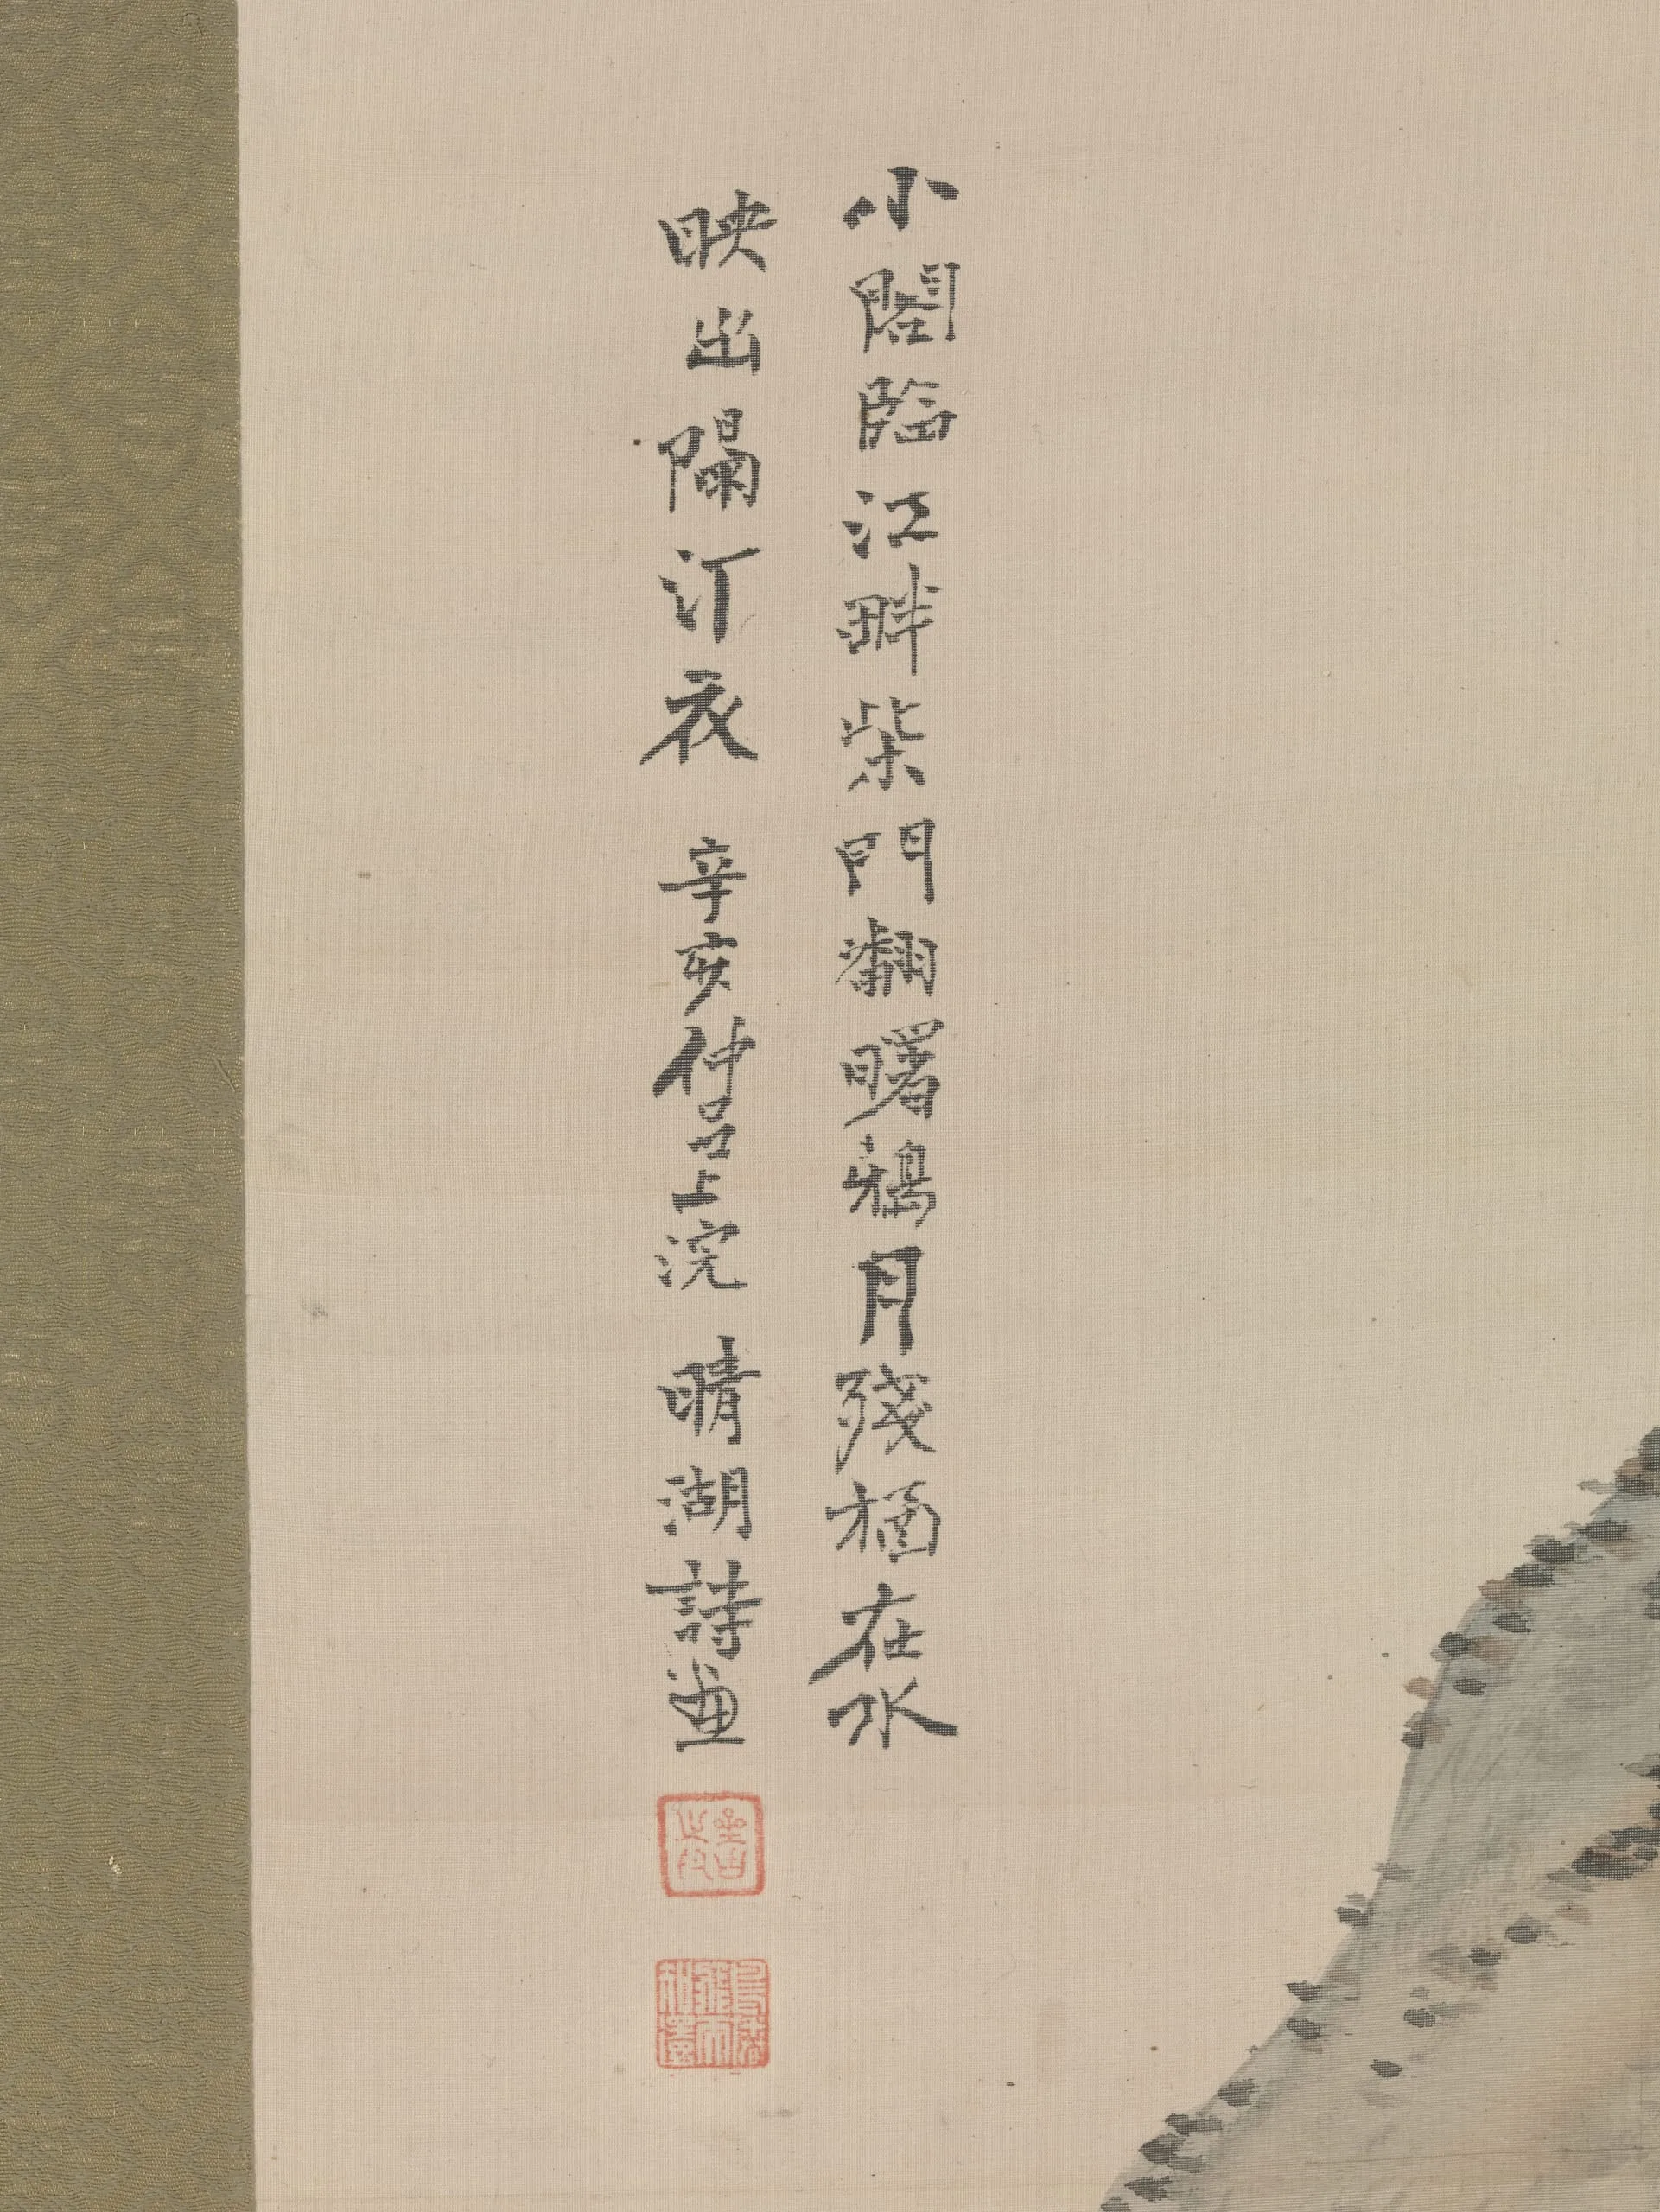 小閣臨江畔柴門翻曙鴉月殘猶在水
映出隔汀花 辛亥仲呂上浣 晴湖詩畫